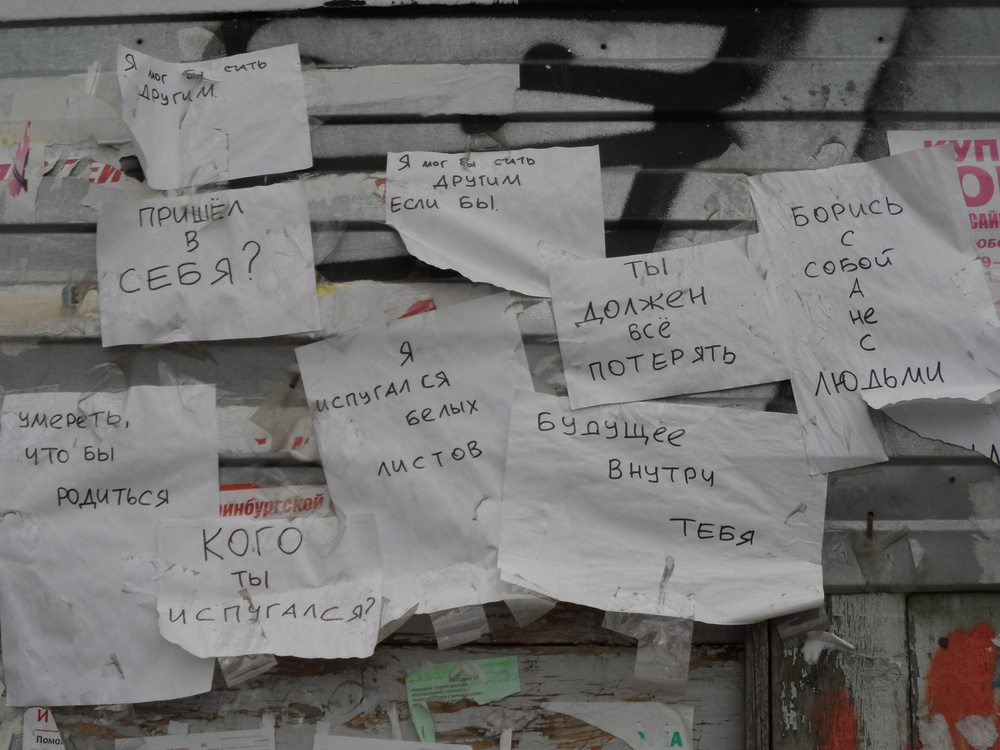 Я мог бы сить
ДРУГИМ.
ПРИШЁЛ
В
СЕБЯ?
Я мог бы сить
ДРУГИМ
ЕСЛИ БЫ.
ТЫ
ДОЛЖЕН
ВСЁ
ПОТЕРЯТЬ
БОРИСЬ
С
СОБОЙ
А
НЕ
С
ЛЮДЬМИ
УМЕРЕТЬ,
ЧТО БЫ
РОДИТЬСЯ
Я
ИСПУГАЛСЯ
БЕЛЫХ
ЛИСТОВ
БУДУЩЕЕ
ВНУТРИ
ТЕБЯ
КОГО
ТЫ
ИСПУГАЛСЯ?
ринбургской
КУП
САЙ
И
Помо
А